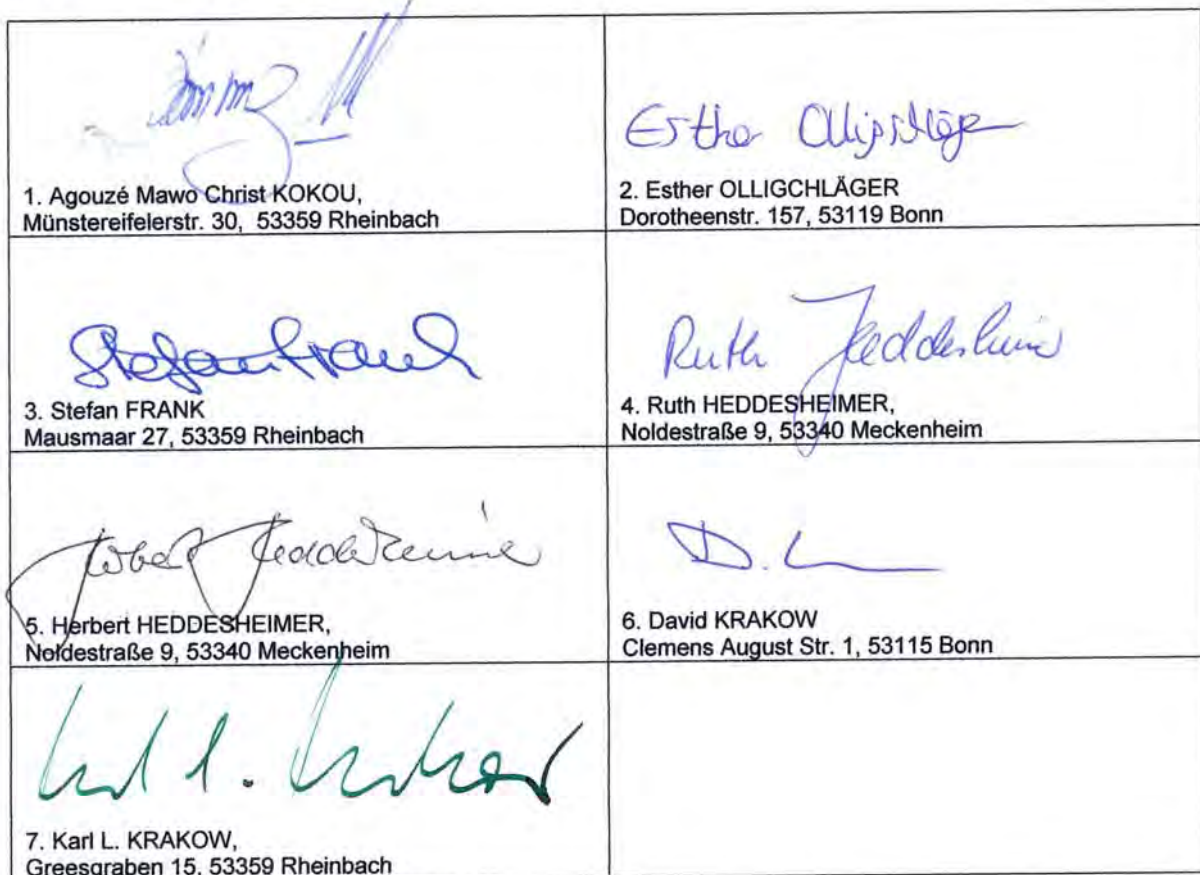 Esther
1. Agouzé Mawo Christ KOKOU,
Münstereifelerstr. 30, 53359 Rheinbach
2. Esther OLLIGCHLÄGER
Dorotheenstr. 157, 53119 Bonn
Stefan Frank
3. Stefan FRANK
Mausmaar 27, 53359 Rheinbach
Ruth Heddesheimer
4. Ruth HEDDESHEIMER,
Noldestraße 9, 53340 Meckenheim
Herbert Heddesheimer
5. Herbert HEDDESHEIMER,
Noldestraße 9, 53340 Meckenheim
D.
6. David KRAKOW
Clemens August Str. 1, 53115 Bonn
7. Karl L. KRAKOW,
Greesgraben 15, 53359 Rheinbach